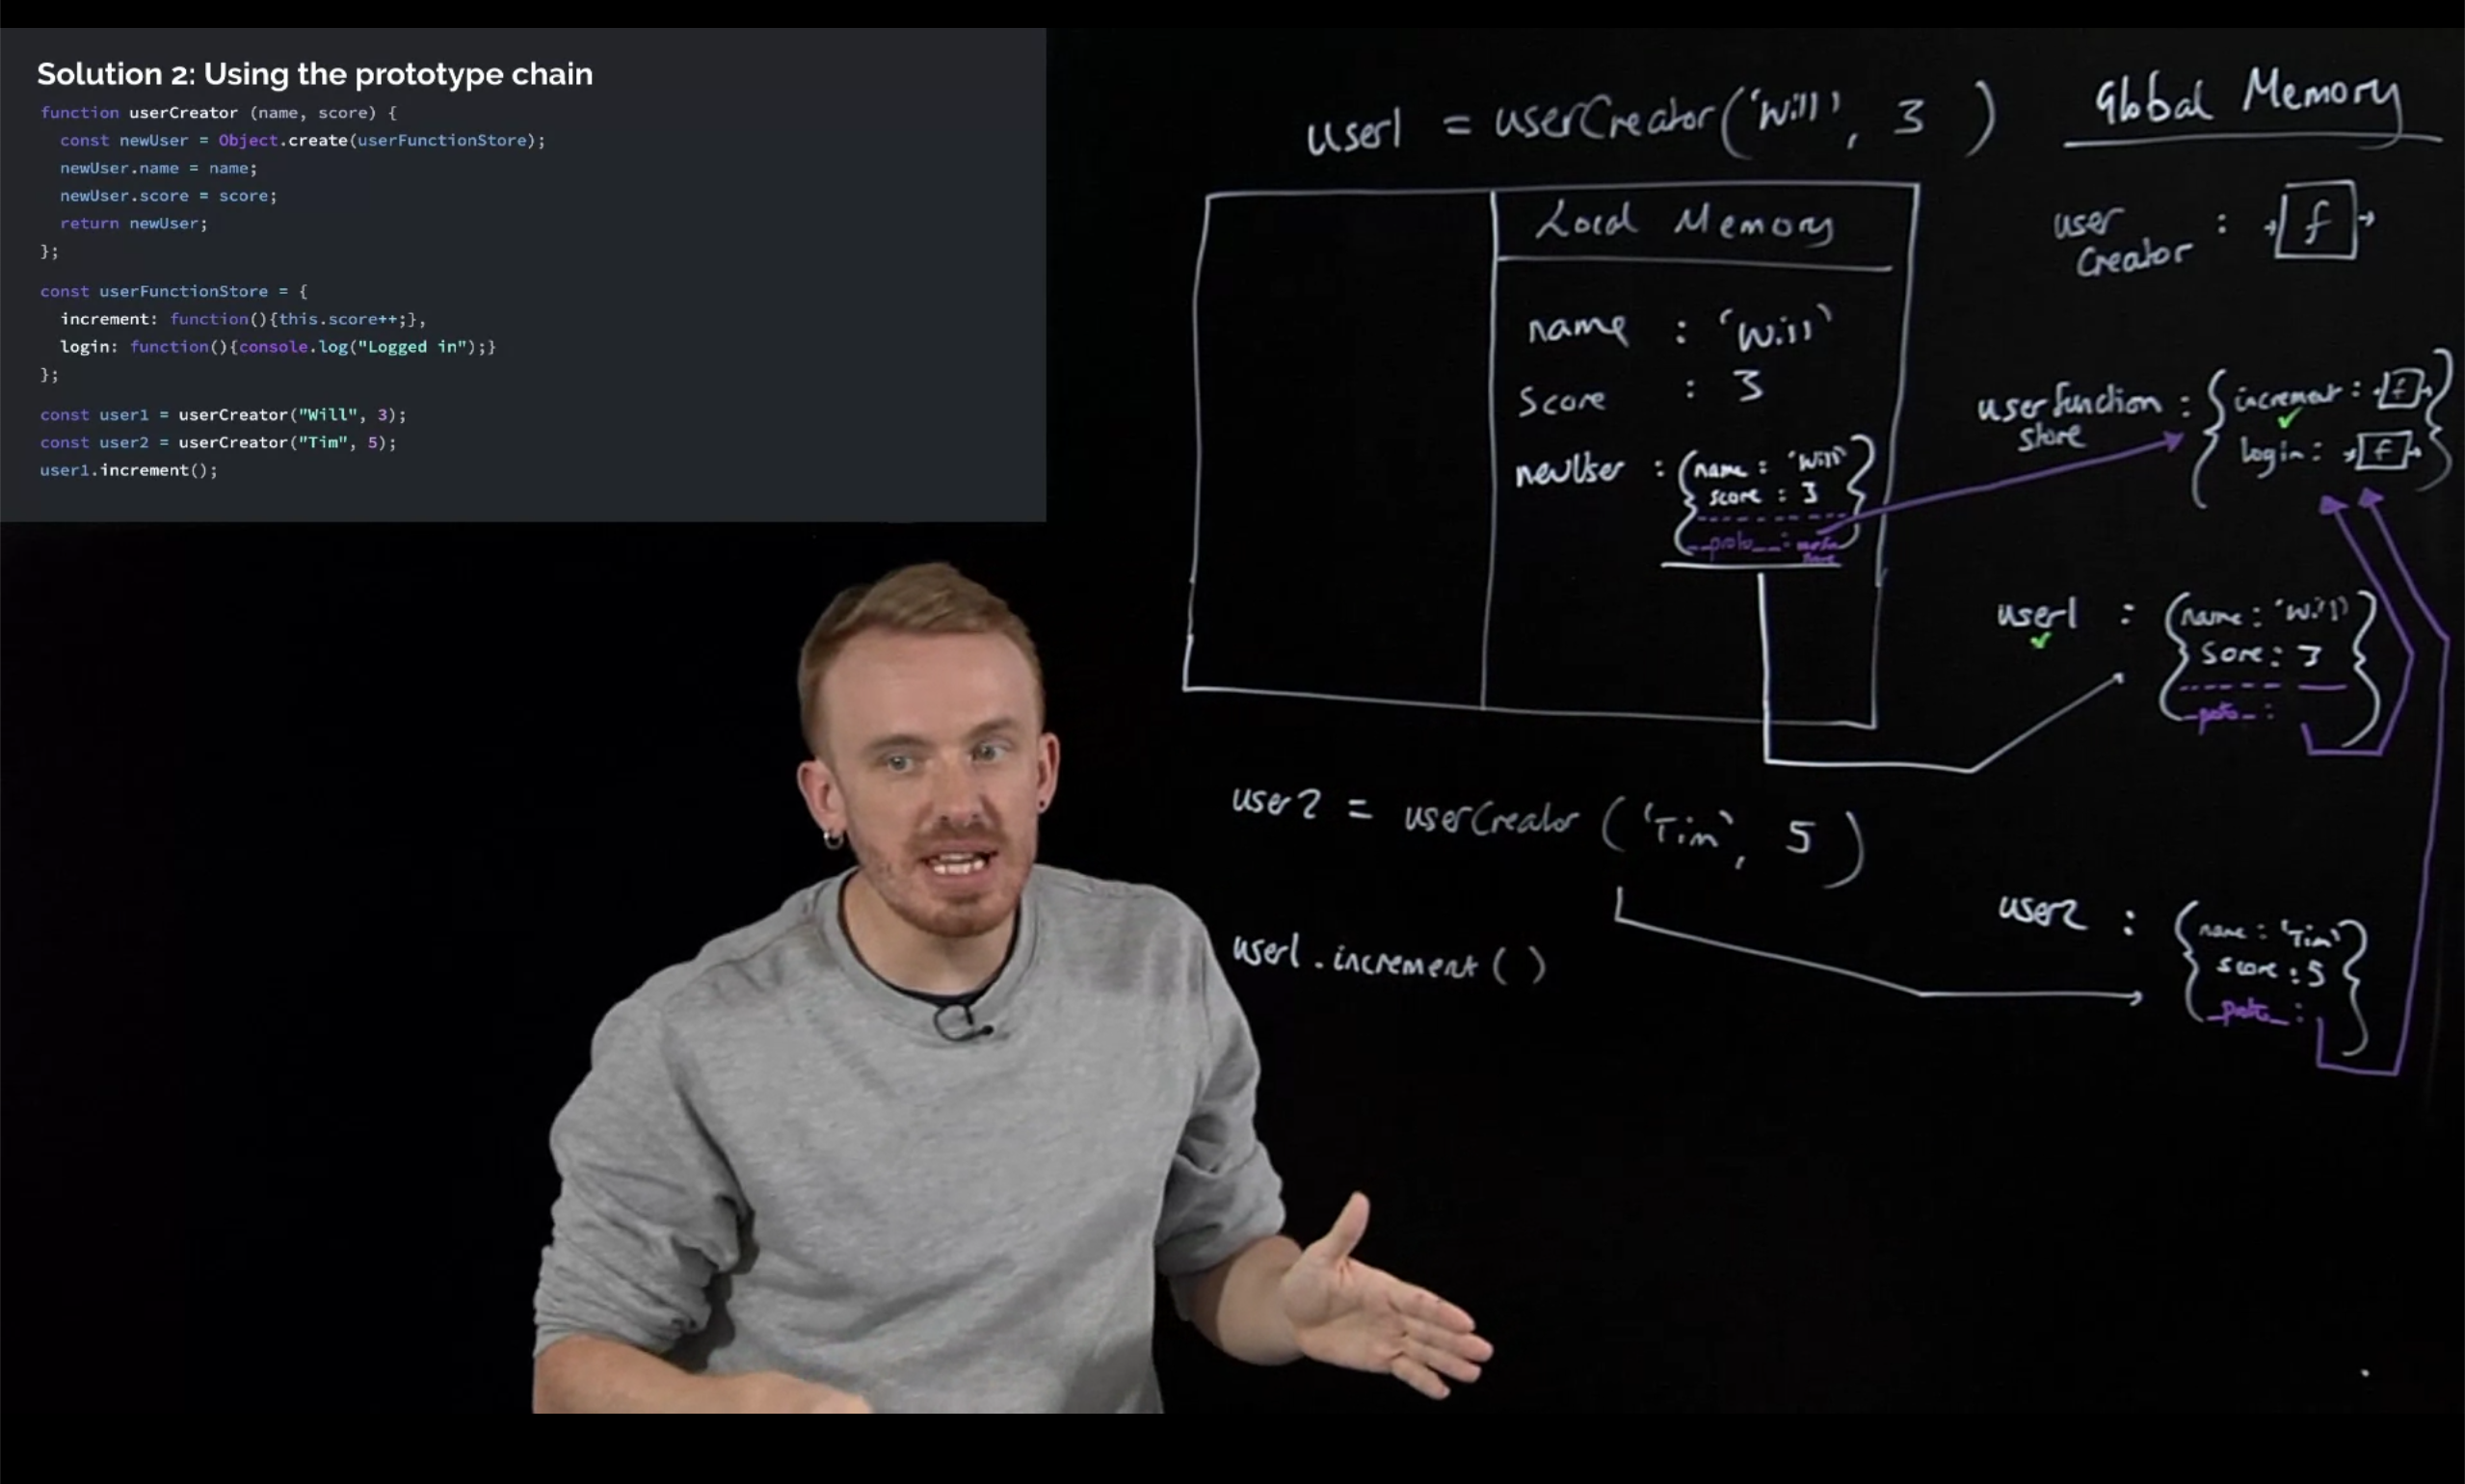 Solution 2: Using the prototype chain
function userCreator (name, score) {
const newUser = Object.create(userFunctionStore);
newUser.name = name;
newUser.score = score;
return newUser;
};
const userFunctionStore = {
increment: function(){this.score++;},
login: function(){console.log("Logged in");}
};
const user1 = userCreator("Will", 3);
const user2 = userCreator("Tim", 5);
user1.increment();
user1 = userCreator('Will', 3 )
Local Memory
name : 'Will'
Score : 3
newUser : { name : 'Will'
score : 3
__proto__ :
}
user2 = userCreator ('Tim', 5 )
user1.increment ( )
Global Memory
user
Creator : f
userfunction
store : { increment : f
login : f }
user1 : { name : 'Will'
Sore : 3
_poto_ : }
user2 : { name : 'Tim'
score : 5
_proto_ : }